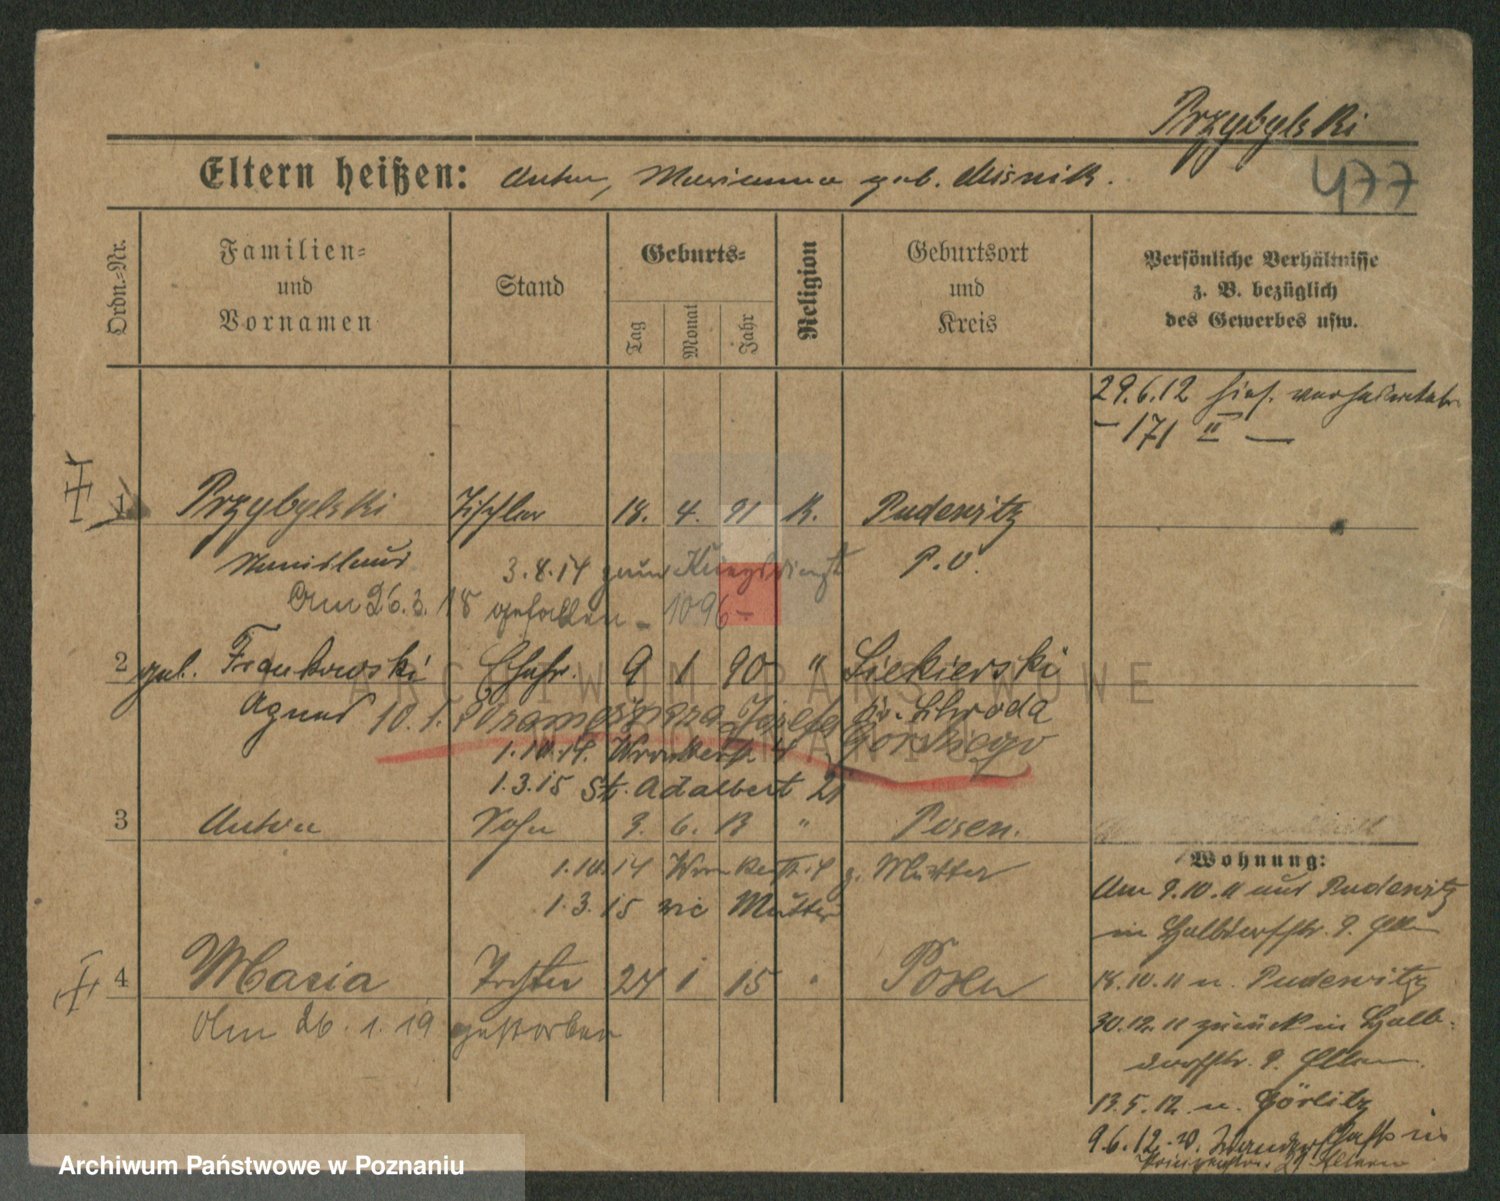 Przybylski
477
Eltern heißen: Anton, Marianna geb. Misnik.
Ordn.-Nr.
Familien-
und
Vornamen
Stand
Geburts-
Tag
Monat
Jahr
Religion
Geburtsort
und
Kreis
Persönliche Verhältnisse
z. B. bezüglich
des Gewerbes usw.
29.6.12 hies.
- 171 II -
1 Przybylski Tischler 18. 4. 91 K. Pudewitz
Stanislaus 3.8.14 zum Kriegsdienst P.O.
Am 26.3.18 gefallen - 1096 -
2 geb. Frankowski Ehefr. 9 1 90 " Siekierski
Agnes 10.1. Józefa Kr. Schroda
Górskiego
1.10.14. Wronkerstr. 4
1.3.15 St. Adalbert 21
3 Anton Sohn 9. 6. 13 " Posen.
1.10.14 Wronkerstr. 4 z. Mutter
1.3.15 wie Mutter
4 Maria Tochter 24 1 15 " Posen
Am 26.1.19 gestorben
Wohnung:
Am 9.10.11 aus Pudewitz
in Halbdorfstr. 9. Eltern
18.10.11 n. Pudewitz
30.12.11 zurück in Halb-
dorfstr. 9. Eltern.
13.5.12 n. Görlitz
9.6.12. v. Wanderschaft in
Eltern
ARCHIWUM PAŃSTWOWE
W POZNANIU
Archiwum Państwowe w Poznaniu